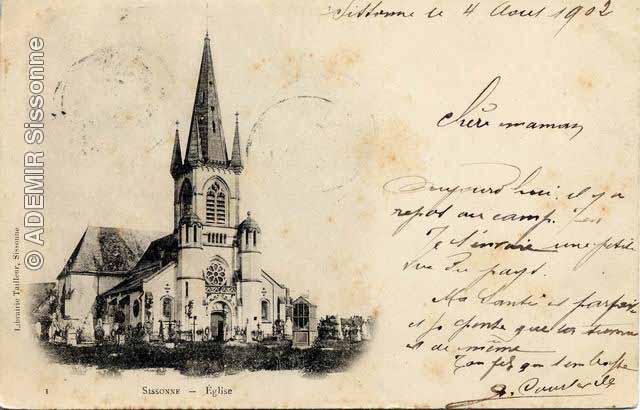 Sissonne le 4 Aout 1902
Chère maman
Aujourd'hui il y a
repos au camp.
Je t'envoie une petite
vue du pays.
Ma santé est parfaite
et j'espère que
est de même
Ton fils qui t'embrasse
© ADEMIR Sissonne
Librairie Tailleur, Sissonne
1
SISSONNE — Église